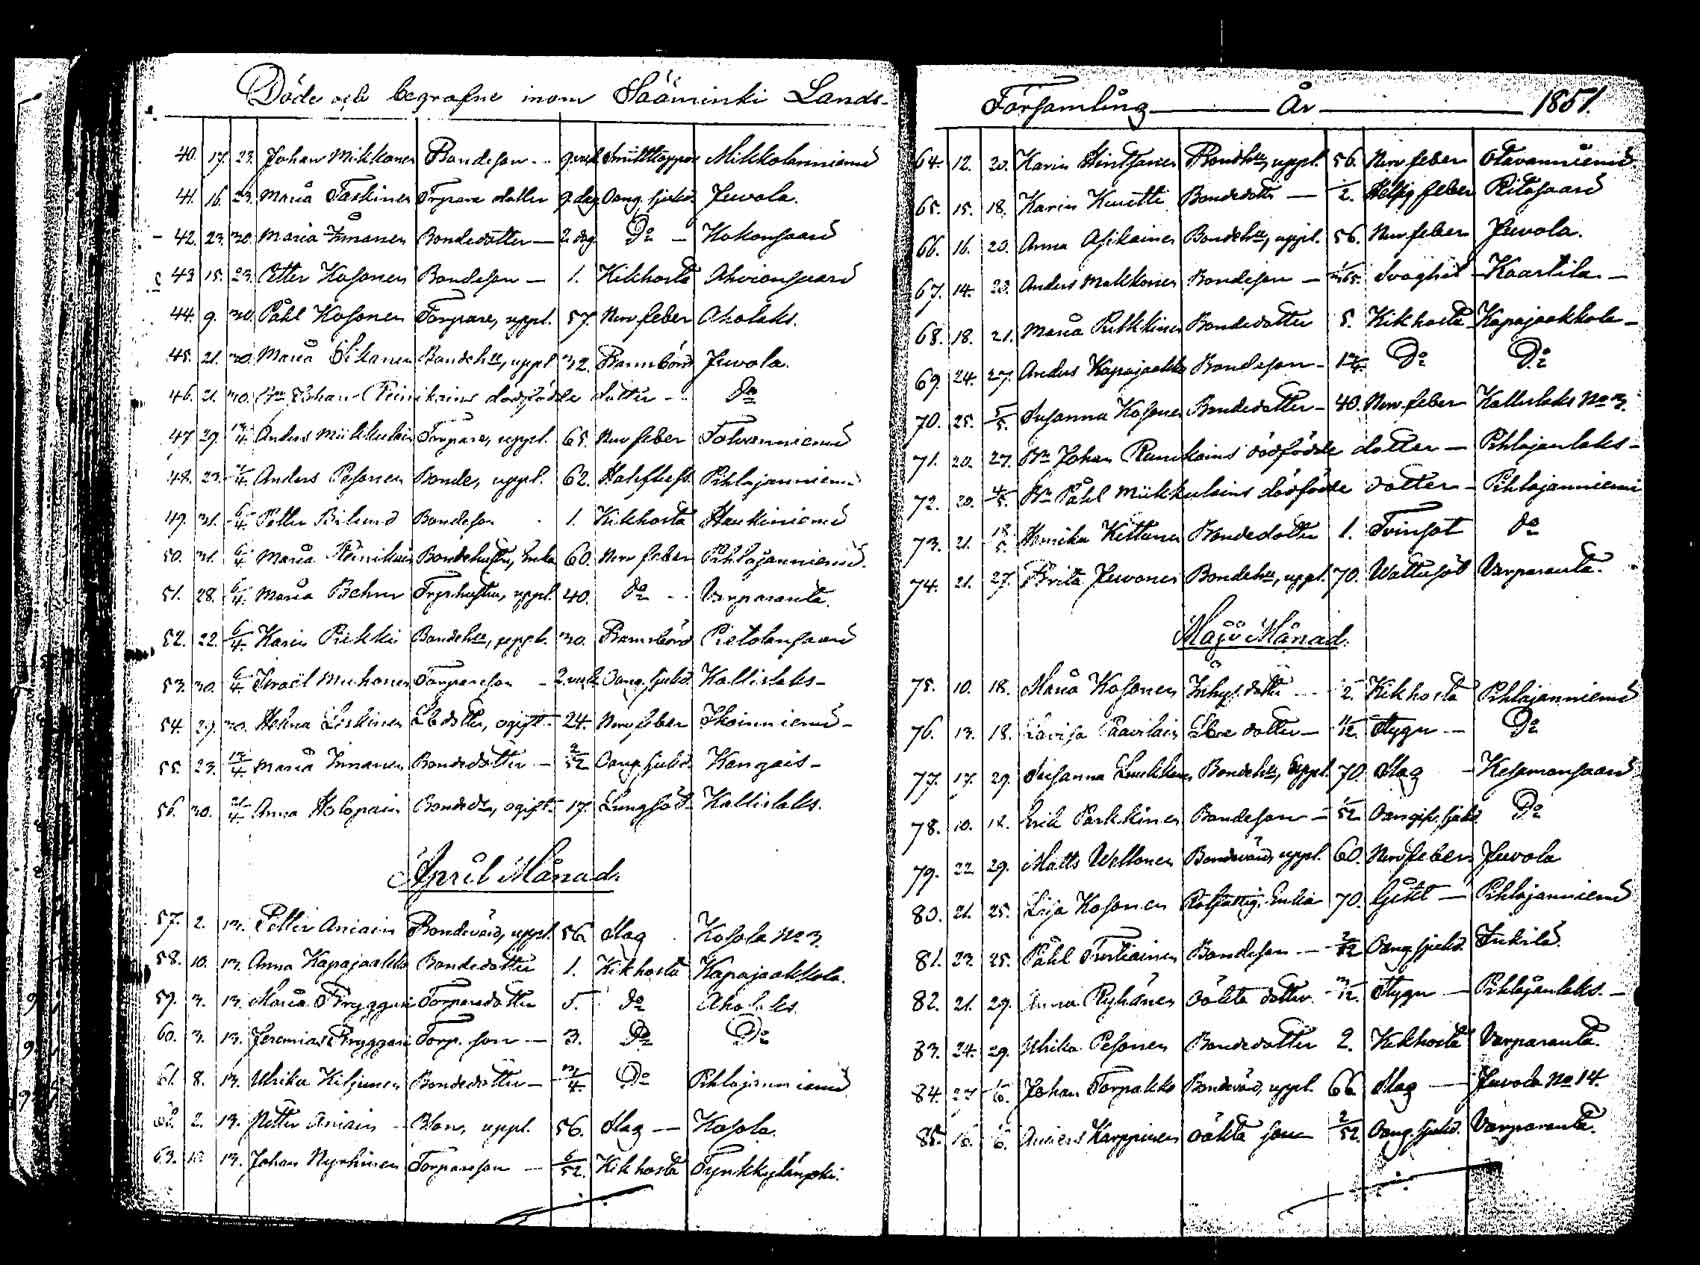 Döde och begrafne inom Sääminki Lands-
40. 17. 23. Johan Mikkonen Bondeson Mikkolanniemi
41. 16. 23. Maria Taskinen Torpare dotter 9 dag Oang. sjukd. Juvola.
42. 23. 30. Maria Immonen Bondedotter — 2 dag Do — Kokonsaari
43. 15. 23. Petter Kosonen Bondeson — 1. Kikhosta Ahvionsaari
44. 9. 30. Påhl Kosonen Torpare, uppl. 57. Nerv feber Aholaks.
45. 21. 30. Maria Bondehu, uppl. 32. Barnsbörd Juvola.
46. 21. 30. Johan dödfödde dotter — Do
47. 29. Anders Mikkulain Torpare, uppl. 65. Nerv feber Tolvanniemi
48. 23. Anders Pesonen Bonde, uppl. 62. Pihlajanniemi
49. 31. 6/4 Petter Bondeson 1. Kikhosta Haukiniemi
50. 31. 6/4 Maria Bondehustru, Enka 60. Nerv feber Pihlajanniemi.
51. 28. 6/4 Maria uppl. 40. Do Varparanta.
52. 22. 6/4 Karin Bondehu, uppl. 30. Barnsbörd Pietolansaari
53. 30. 6/4 Israël Muhonen Torpareson — Oang. sjukd. Kallislaks —
54. 29. 30. Helena Leskinen dotter, ogift 24. Nerv feber
55. 23. 13/4 Maria Immonen Bondedotter — 2/52 Oang. sjukd. Kangais —
56. 30. 21/4 Anna Holopain Bondedr, ogift 17. Lungsot Kallislaks.
April Månad.
57. 2. 13. Petter Aniain Bondevärd, uppl. 56 Slag Kosola No 3.
58. 10. 13. Anna Kapajaakko Bondedotter 1. Kikhosta Kapajaakkola.
59. 3. 13. Maria Bryggari Torparedotter 5. do Aholaks.
60. 3. 13. Jeremias Bryggari Torp. son — 3. Do Do
61. 8. 13. Ulrika Kiljunen Bondedotter — 3/4 Do Pihlajanniemi
62. 2. 13. Petter Aniain uppl. 56. Slag — Kosola.
63. 10 13. Johan Nyrhinen Torpareson — 6/52 Kikhosta
Församling — År — 1851.
64. 12. 20. Karin Hintsanen Bondehu, uppl. 56. Nerv feber Otavanniemi
65. 15. 18. Karin Kuutti Bondedotter — feber Ritosaari
66. 16. 20. Anna Asikainen Bondehu, uppl. 56. Nerv feber Juvola.
67. 14. 20. Anders Makkonen Bondeson — Svaghet — Kaartila —
68. 18. 21. Maria Putkkinen Bondedotter 5. Kikhosta Kapajaakkola —
69. 24. 27. Anders Kapajaakko Bondeson — Do Do
70. 25. Susanna Kosonen Bondedotter — 40. Nerv feber Kallislaks No 3.
71. 20. 27. Bn Johan dödfödde dotter — Pihlajanlaks —
72. 20. 4/5 Bn Påhl Mikkulains dödfödde dotter — Pihlajanniemi
73. 21. Henrika Kettunen Bondedotter 1. Tvinsot do
74. 21. 27. Brita Juvonen Bondehu, uppl. 70. Wattusot Varparanta.
Maji Månad.
75. 10. 18. Maria Kosonen Inhys. dotter Kikhosta Pihlajanniemi
76. 13. 18. Lovisa Paavilain dotter — Stygn — Do
77. 17. 29. Susanna Luukkonen Bondehu, uppl. 70. Slag — Kesamonsaari
78. 10. 18. Erik Parkkinen Bondeson — 1/52 Oangifv. sjukd. Do
79. 22 29. Matts Wallonen Bondevärd, uppl. 60. Nerv feber Juvola
80. 21. 25. Lisa Kosonen Rotfattig, Enka 70. Gikt — Pihlajanniemi
81. 23. 25. Påhl Turtiainen Bondeson — 2/52 Oang. sjukd. Inkilä.
82. 21. 29. Anna Ryhänen oäkta dotter — Stygn — Pihlajanlaks. —
83. 24. 29. Ulrika Pesonen Bondedotter 2. Kikhosta Varparanta.
84. 27 1/6. Johan Torpakko Bondevärd, uppl. 66 Slag — Juvola No 14.
85. 18. Anders Karppinen oäkta son — 2/52 Oang. sjukd. Varparanta.